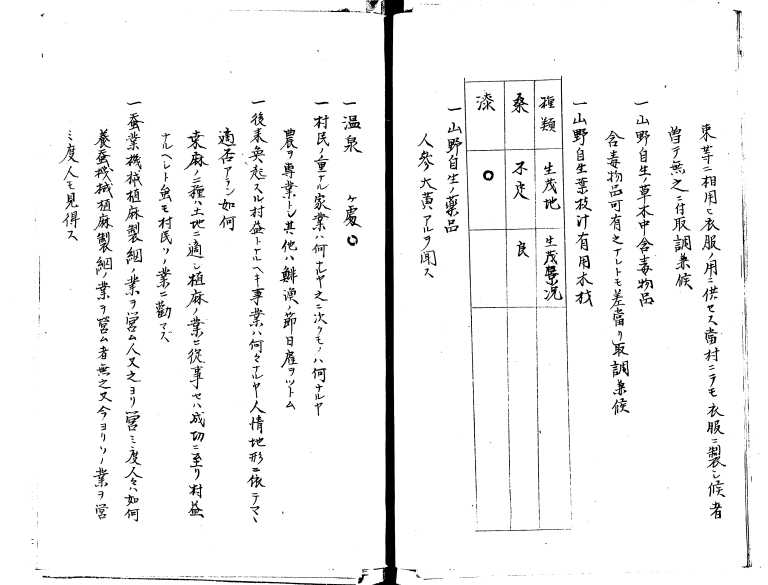 東等ニ相用ヒ衣服ノ用ニ供セス當村ニテモ衣服ニ製シ候者
曽テ無之ニ付取調兼候
一山野自生ノ草木中含毒物品
含毒物品可有之ナレトモ差當リ取調兼候
一山野自生葉枝汁有用木材
種類 生茂地 生茂景況
桑 不定 良
漆 〇
一山野自生ノ薬品
人參大黄アルヲ聞ス
一温泉 ヶ處〇
一村民ノ重ナル家業ハ何ナルヤ之ニ次クモノハ何ナルヤ
農ヲ専業トシ其他ハ鯡漁ノ節日雇ヲツトム
一後来奐起スル村益トナルヘキ事業ハ何々ナルヤ人情地形ニ依テマヽ
適否アラン如何
桒麻ノ二種ハ土地ニ適シ植麻ノ業ニ從事セハ成功ニ至リ村益
ナルヘシト虽モ村民ソノ業ニ勸マス
一蚕業機械植麻製綱ノ業ヲ営ム人又之ヨリ営ミ度人々ハ如何
養蚕機械植麻製綱ノ業ヲ営ム者無之又今ヨリソノ業ヲ営
ミ度人モ見得ス